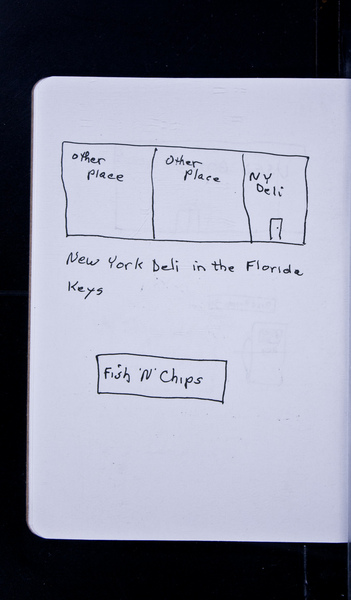 Other
Place
Other
Place
NY
Deli
New York Deli in the Florida
Keys
Fish 'N' Chips